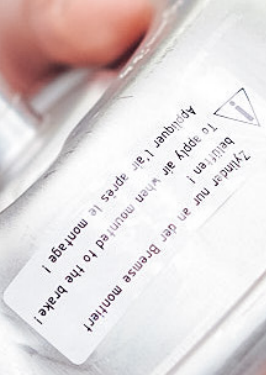 Zylinder nur an der Bremse montiert
belüften !
To apply air when mounted to the brake!
Appliquer l'air après le montage !